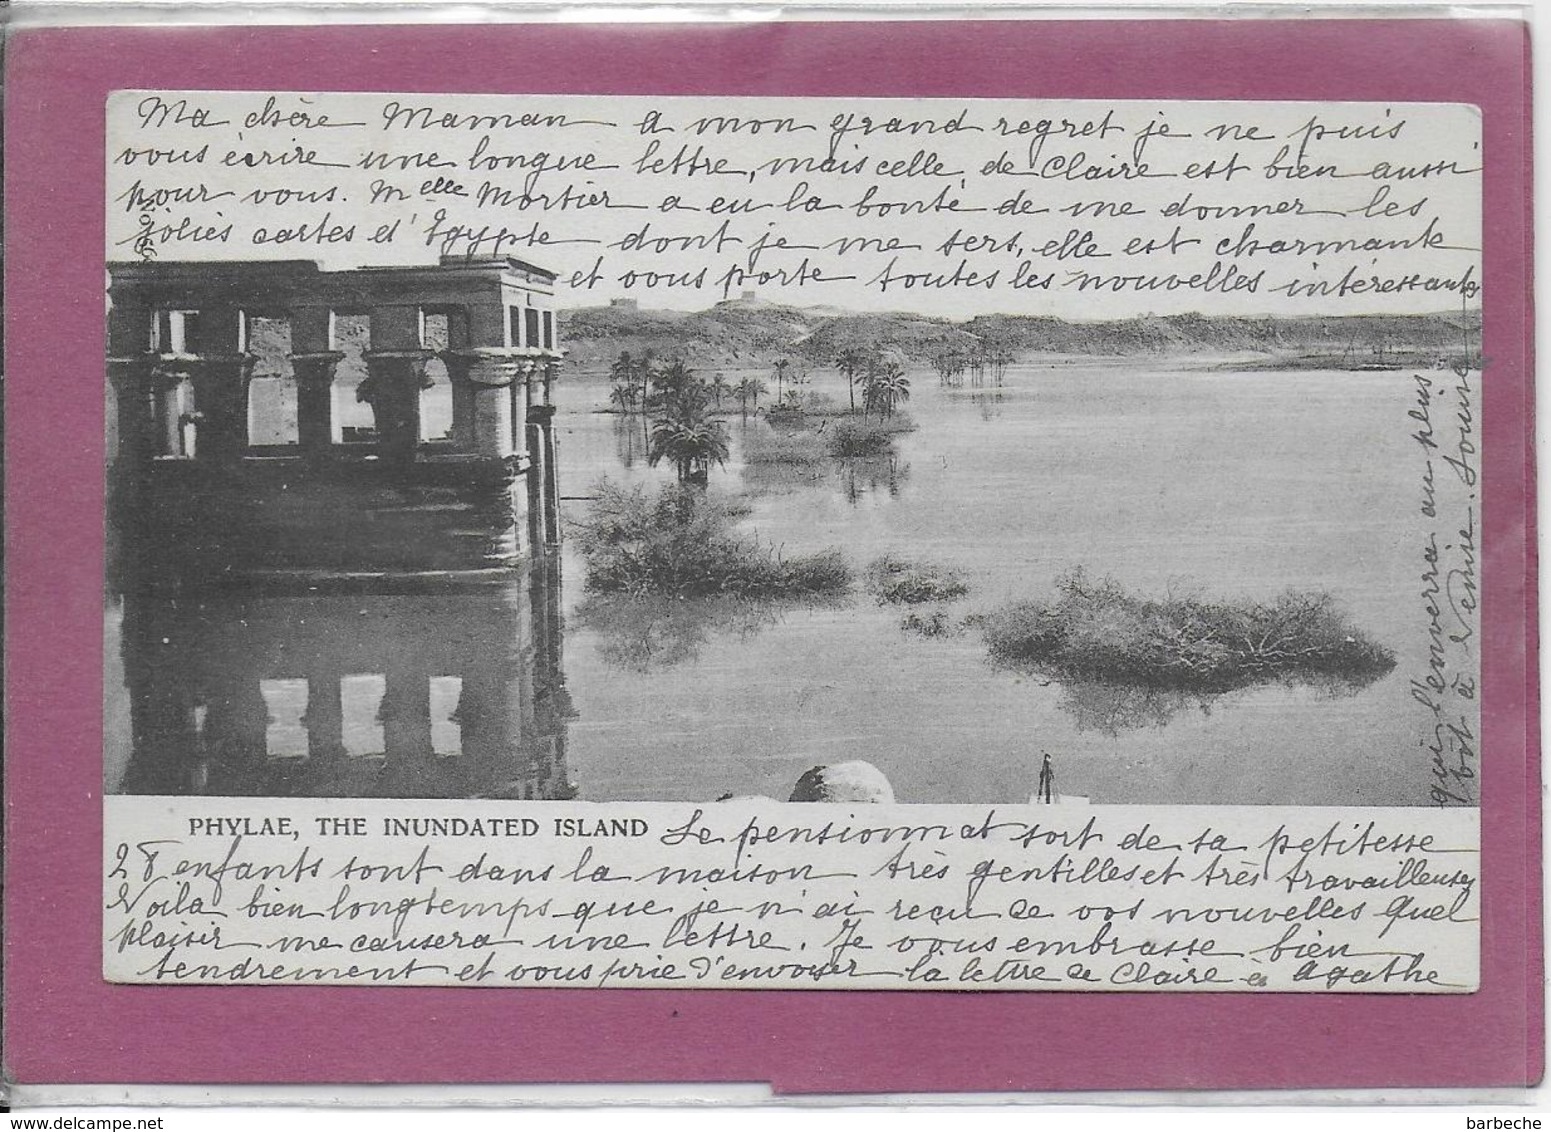 Ma chère Maman a mon grand regret je ne puis
vous écrire une longue lettre, mais celle de Claire est bien aussi
pour vous. Melle Mortier a eu la bonté de me donner les
jolies cartes d'Egypte dont je me sers, elle est charmante
et vous porte toutes les nouvelles intéressantes
PHYLAE, THE INUNDATED ISLAND
Le pensionnat sort de sa petitesse
28 enfants sont dans la maison très gentilles et très travailleuses
Voilà bien longtemps que je n'ai reçu de vos nouvelles Quel
plaisir me causera une lettre. Je vous embrasse bien
tendrement et vous prie d'envoyer la lettre de Claire à Agathe
qui l'enverra au plus
tôt à Venise. Louise
www.delcampe.net
barbeche